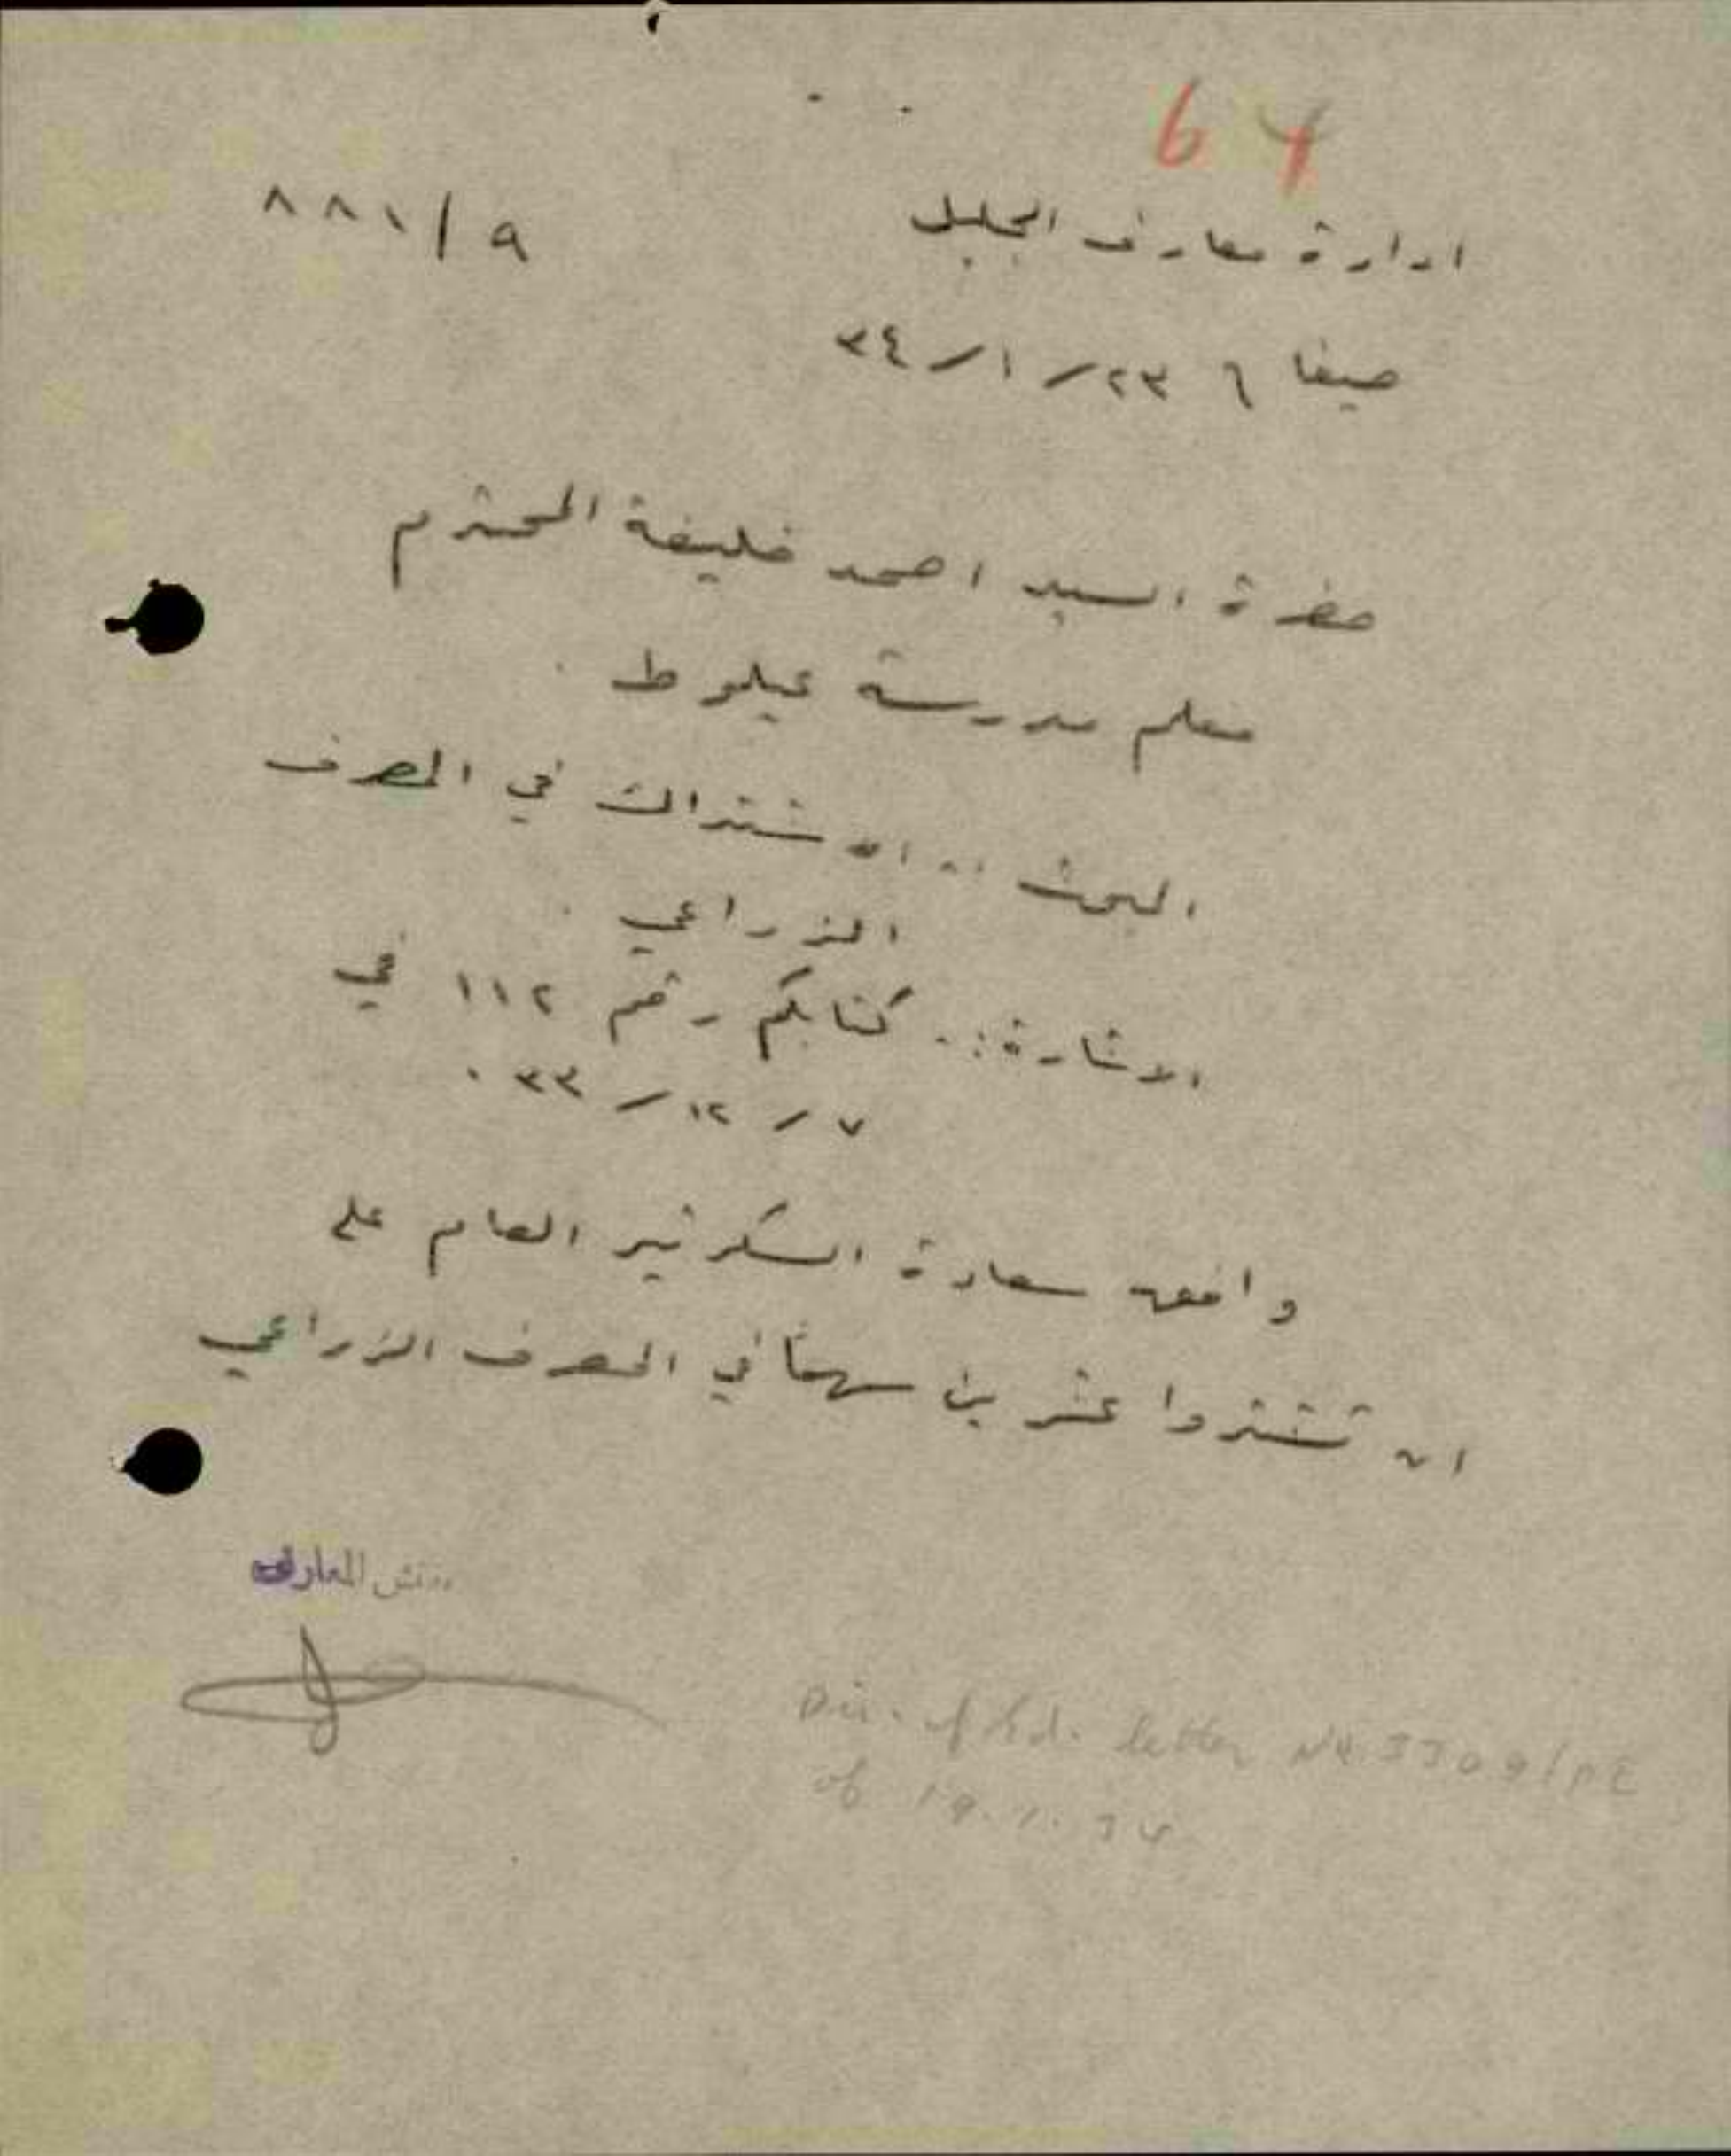 64
ادارة معارف الجليل
٨٨١/٩
حيفا ٦ ٢٣/١/٣٤
حضرة السيد احمد خليفة المحترم
معلم مدرسة عيلوط .
البحث :- الاشتراك في المصرف
الزراعي .
الاشارة :- كتابكم رقم ١١٢ في
٧/١٢/٣٣ .
وافق سعادة السكرتير العام على
ان تشتروا عشرين سهماً في المصرف الزراعي
مفتش المعارف
Dir. of Ed. letter No 3309/PE
of 19.1.34